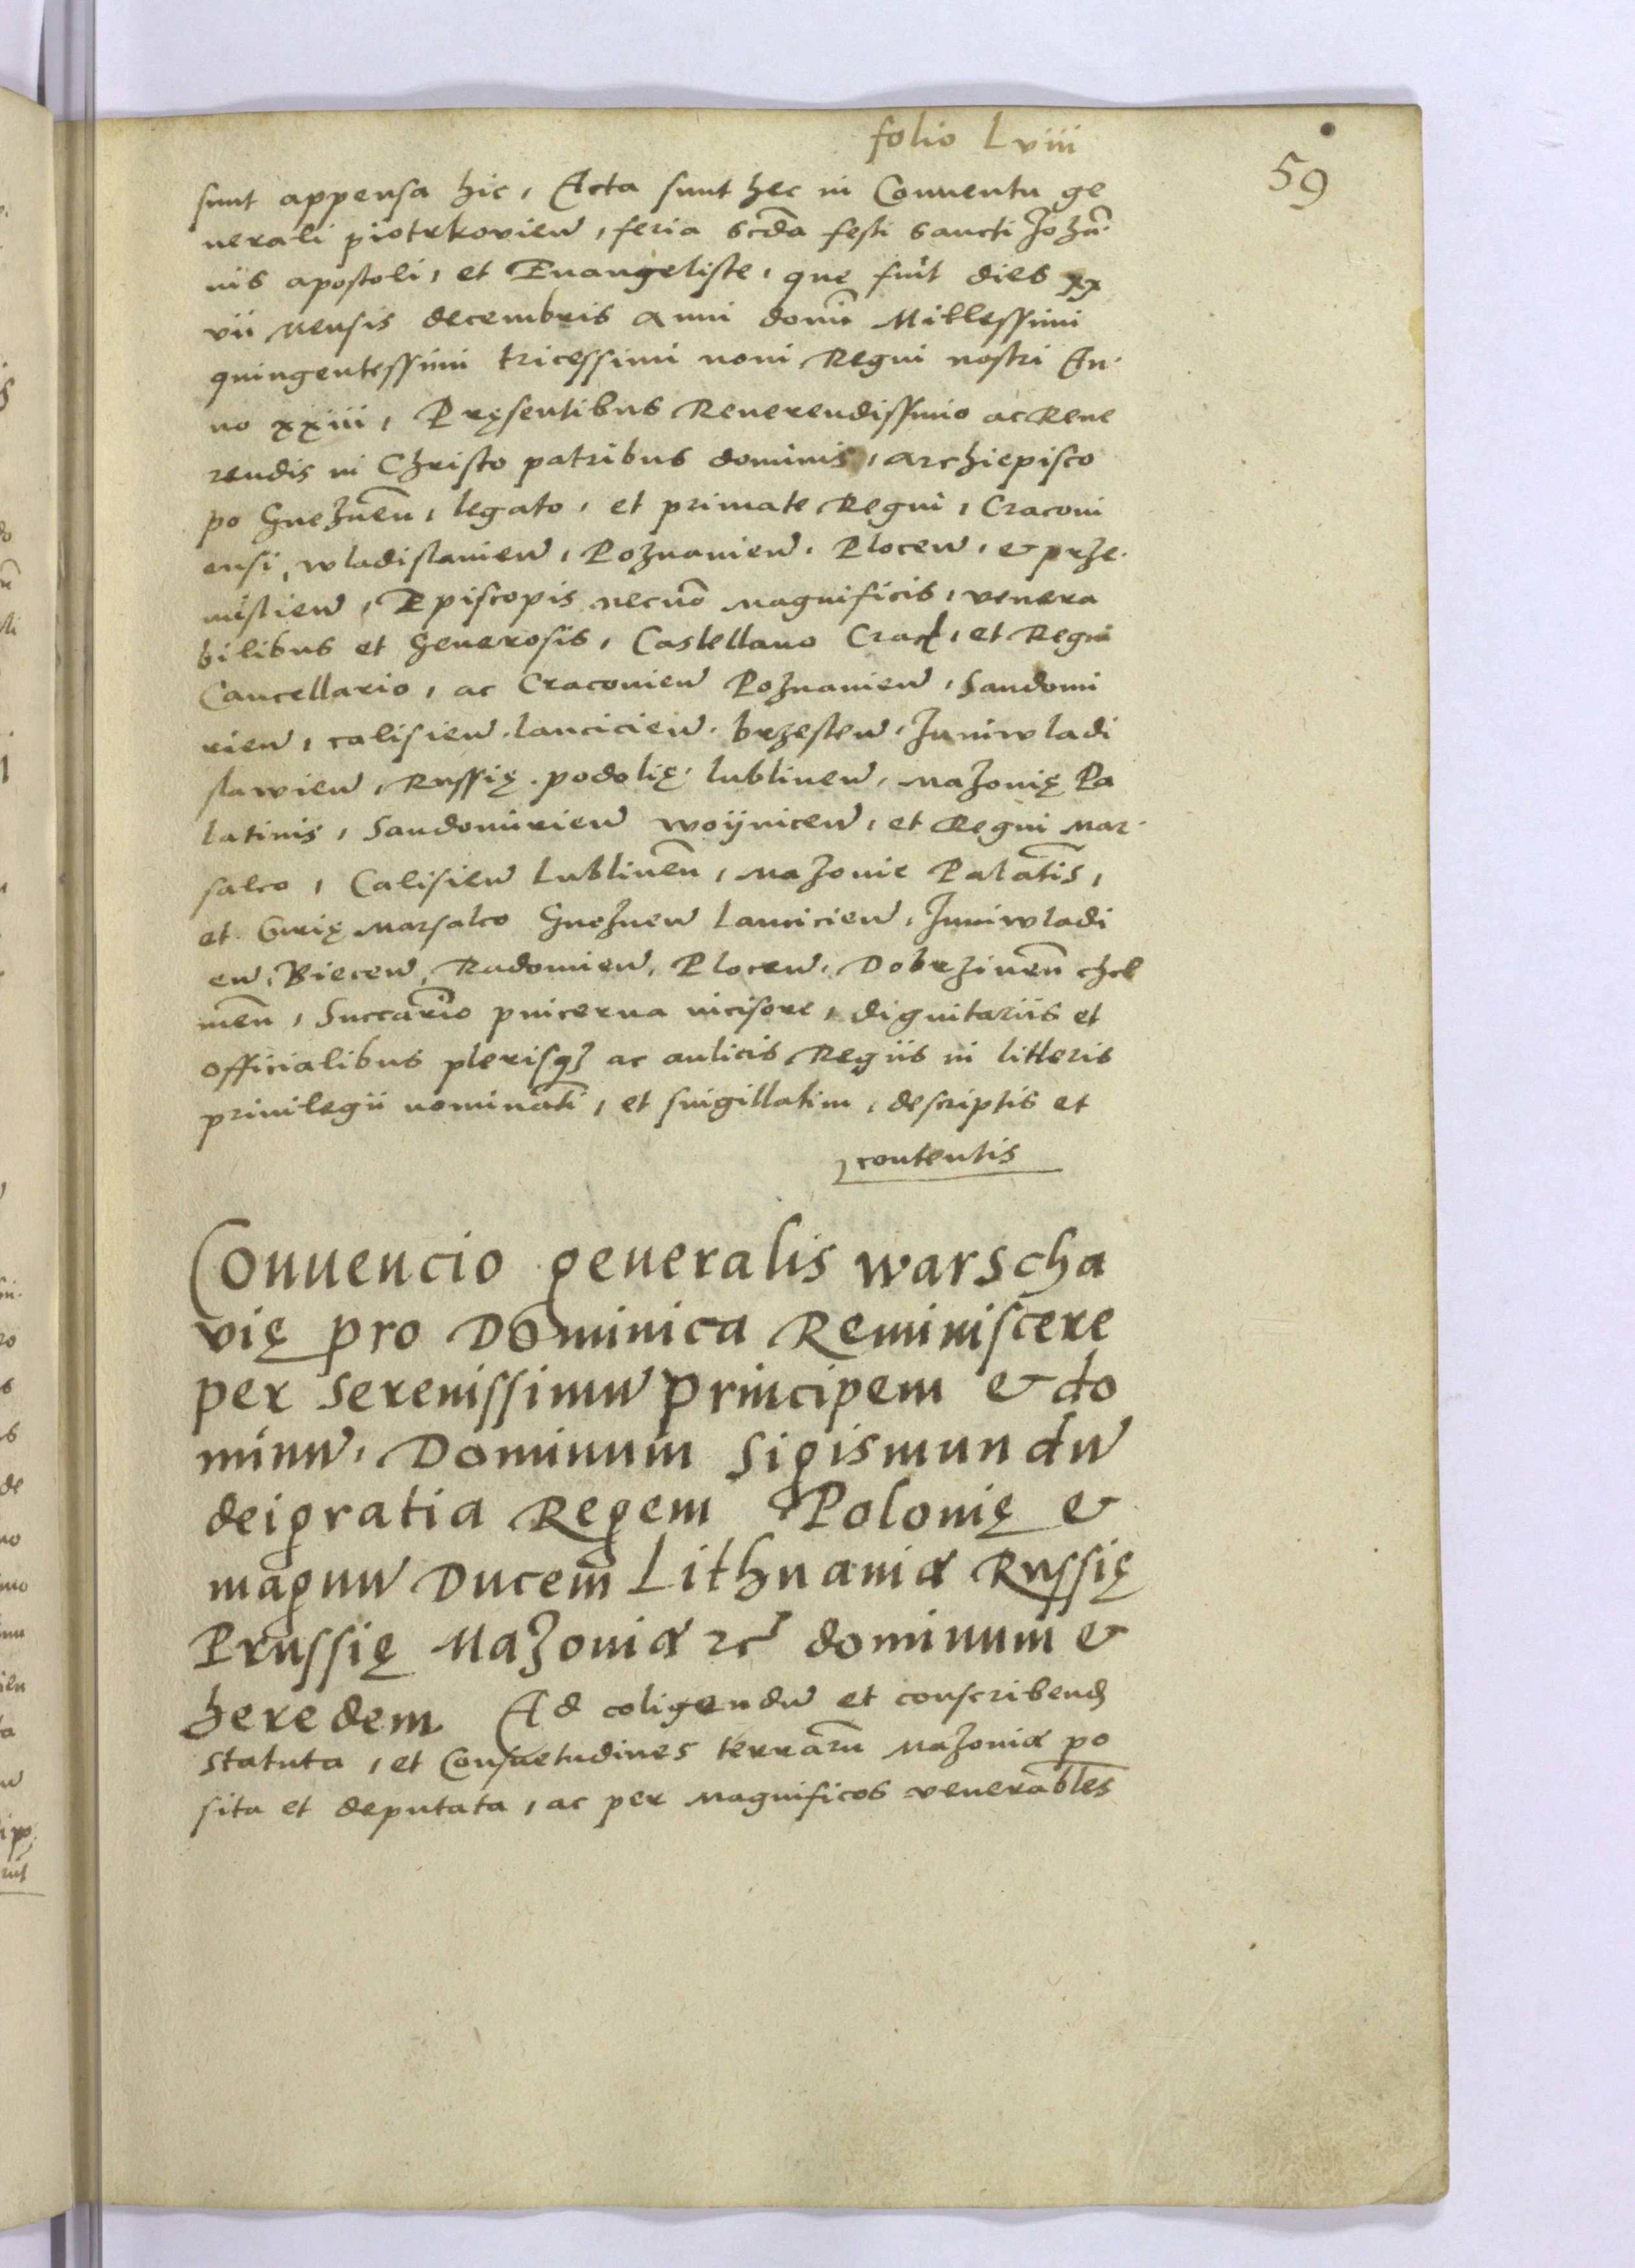 folio Lviii
59
sunt appensa hic, Acta sunt hec in Conuentu ge
nerali piotrkovien̄, feria scd̄a festi sancti Johān
nis apostoli, et Euangeliste, que fuit dies xx
vii mensis decembris anni domī Millessimi
quingentessimi tricessimi noni Regni nostri An
no xxiii, Pręsentibus Reuerendissimo ac Reue
rendis in Christo patribus dominis, archiepisco
po Gneznen̄, legato, et primate Regni, Craconi
ensi, wladislauien̄, Poznanien̄, Plocen̄, & prze
mislien̄, Episcopis necnō magnificis, venera
bilibus et Generosis, Castellano Crac, et Regni
Cancellario, ac Craconien̄ Poznanien̄, Sandomi
rien̄, calisien̄, lancicien̄, brzesten̄, Juniwladi
slawien̄, Russię, podolię, lublinen̄, Mazouię Pa
latinis, Sandomirien̄ woijnicen̄, et Regni Mar
salco, Calisien̄ Lublinen̄, Mazouie Palātīs,
et Curię Marsalco Gneznen̄ Lancicien̄, Juniwladi
en̄, Biecen̄, Radomien̄, Plocen̄, Dobrzinen̄ chel
men̄, Succāmerio pincerna incisore, dignitariis et
officialibus plerisqꝫ ac aulicis Regiis in litteris
priuilegii nominatī, et singillatim, descriptis et
contentis
Conuencio generalis warscha
vię pro Dominica Reminiscere
per Serenissimū principem & do
minū, Dominum Sigismundū
deigratia Regem Polonię &
magnū Ducem̄ Lithuaniæ Russię
Prussię Mazouiæ ꝛc̄ dominum &
heredem Ad coligendū et conscribendꝫ
Statuta, et Consuetudines terrarū Mazouiæ po
sita et deputata, ac per magnificos venerabl̄es